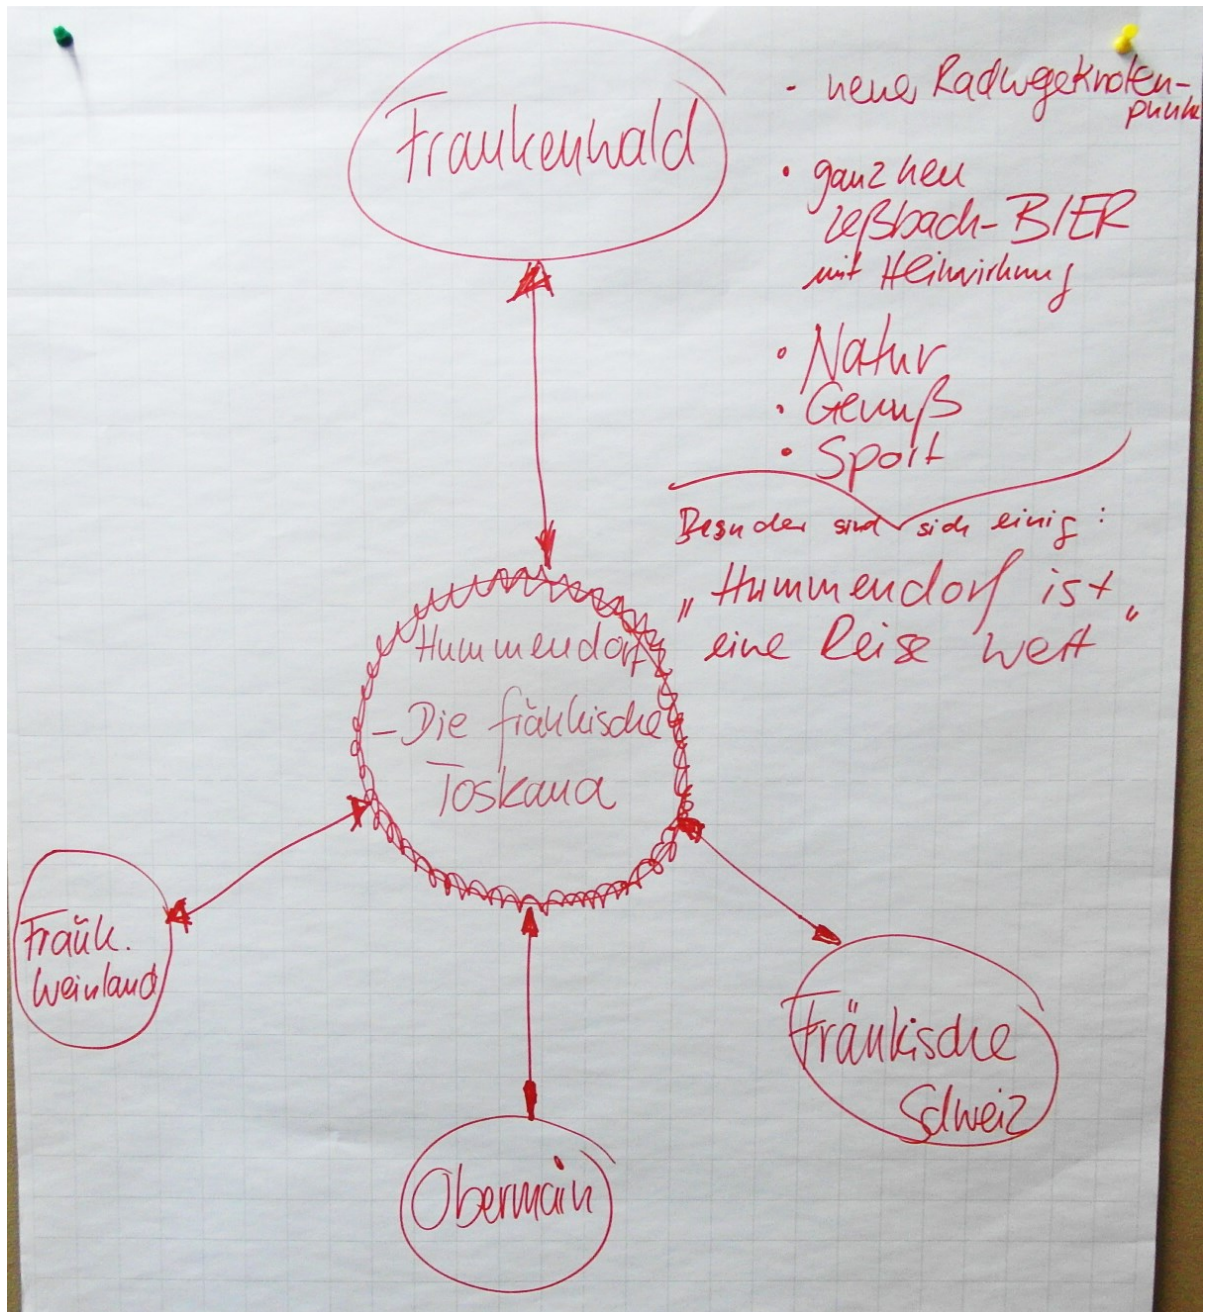 Frankenwald
• neuer Radwegeknoten-
punkt
• ganz neu
Leßbach-BIER
mit Heilwirkung
• Natur
• Genuß
• Sport
Besucher sind sich einig:
„Hummendorf ist
eine Reise wert"
Hummendorf
- Die fränkische
Toskana
Fränk.
Weinland
Fränkische
Schweiz
Obermain